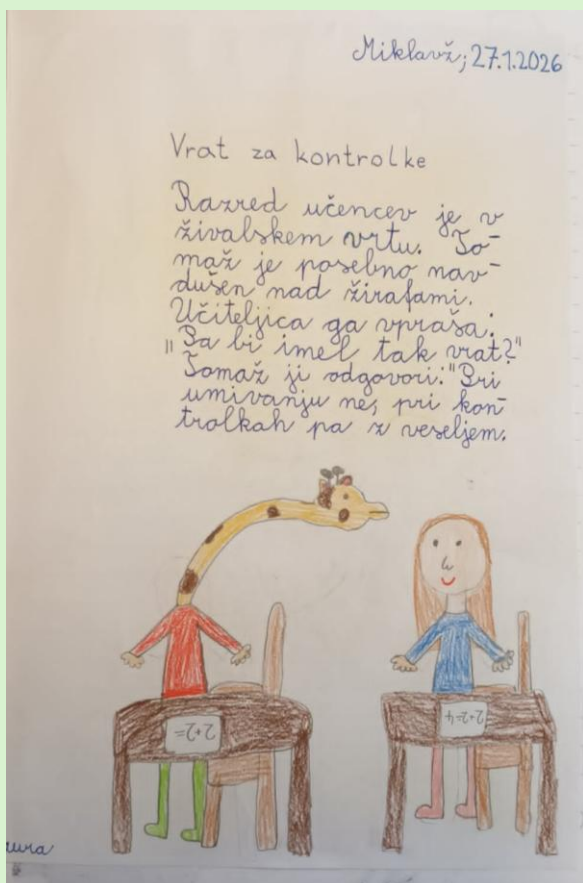 Miklavž, 27.1.2026
Vrat za kontrolke
Razred učencev je v
živalskem vrtu. To-
maž je posebno nav-
dušen nad žirafami.
Učiteljica ga vpraša:
"Pa bi imel tak vrat?"
Tomaž ji odgovori: "Pri
umivanju ne, pri kon-
trolkah pa z veseljem.
2+2=
2+2=4